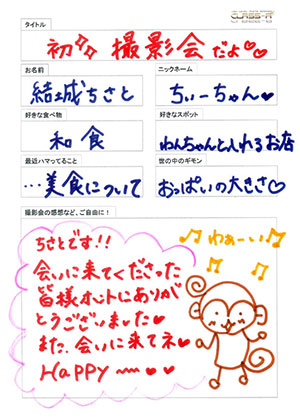 タイトル
初々 撮影会だよ♡♡
お名前
ニックネーム
結城ちさと
ちぃーちゃん♥
好きな食べ物
好きなスポット
和食
わんちゃんと入れるお店
最近ハマってること
世の中のギモン
…美食について
おっぱいの大きさ♥
撮影会の感想など、ご自由に！
ちさとです!!
会いに来てくださった
皆様ホントにありが
とうございました♥
また、会いに来てネ♥
HAPPY 〜〜 ♥♥
♫わぁーい♪